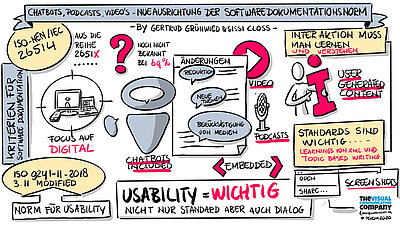 CHATBOTS, PODCASTS, VIDEO'S - NEUAUSRICHTUNG DER SOFTWAREDOKUMENTATIONSNORM
-By GERTRUD GRÜNWIED & SISSI CLOSS-
ISO-NEN/IEC
26514
AUS DIE
REIHE
2651X
NOCH NICHT
BEKANNT
BEI 69%
ÄNDERUNGEN
REDUKTION
NEUE
THEMEN
BERÜCKSICHTIGUNG
VON MEDIEN
VIDEO
PODCASTS
INTERAKTION MUSS
MAN LERNEN
UND VERSTEHEN
USER
GENERATED
CONTENT
KRITERIEN FÜR
SOFTWARE DOKUMENTATION
FOCUS AUF
DIGITAL
CHATBOTS
INCLUDED
EMBEDDED
STANDARDS SIND
WICHTIG....
LEARNINGS FOR XML UND
TOPIC BASED WRITING
ISO 9241-11-2018
3.11 MODIFIED
NORM FÜR USABILITY
USABILITY = WICHTIG
NICHT NUR STANDARD ABER AUCH DIALOG
OPEN
SHARE...
SCREENSHOTS
THEVISUAL
COMPANY